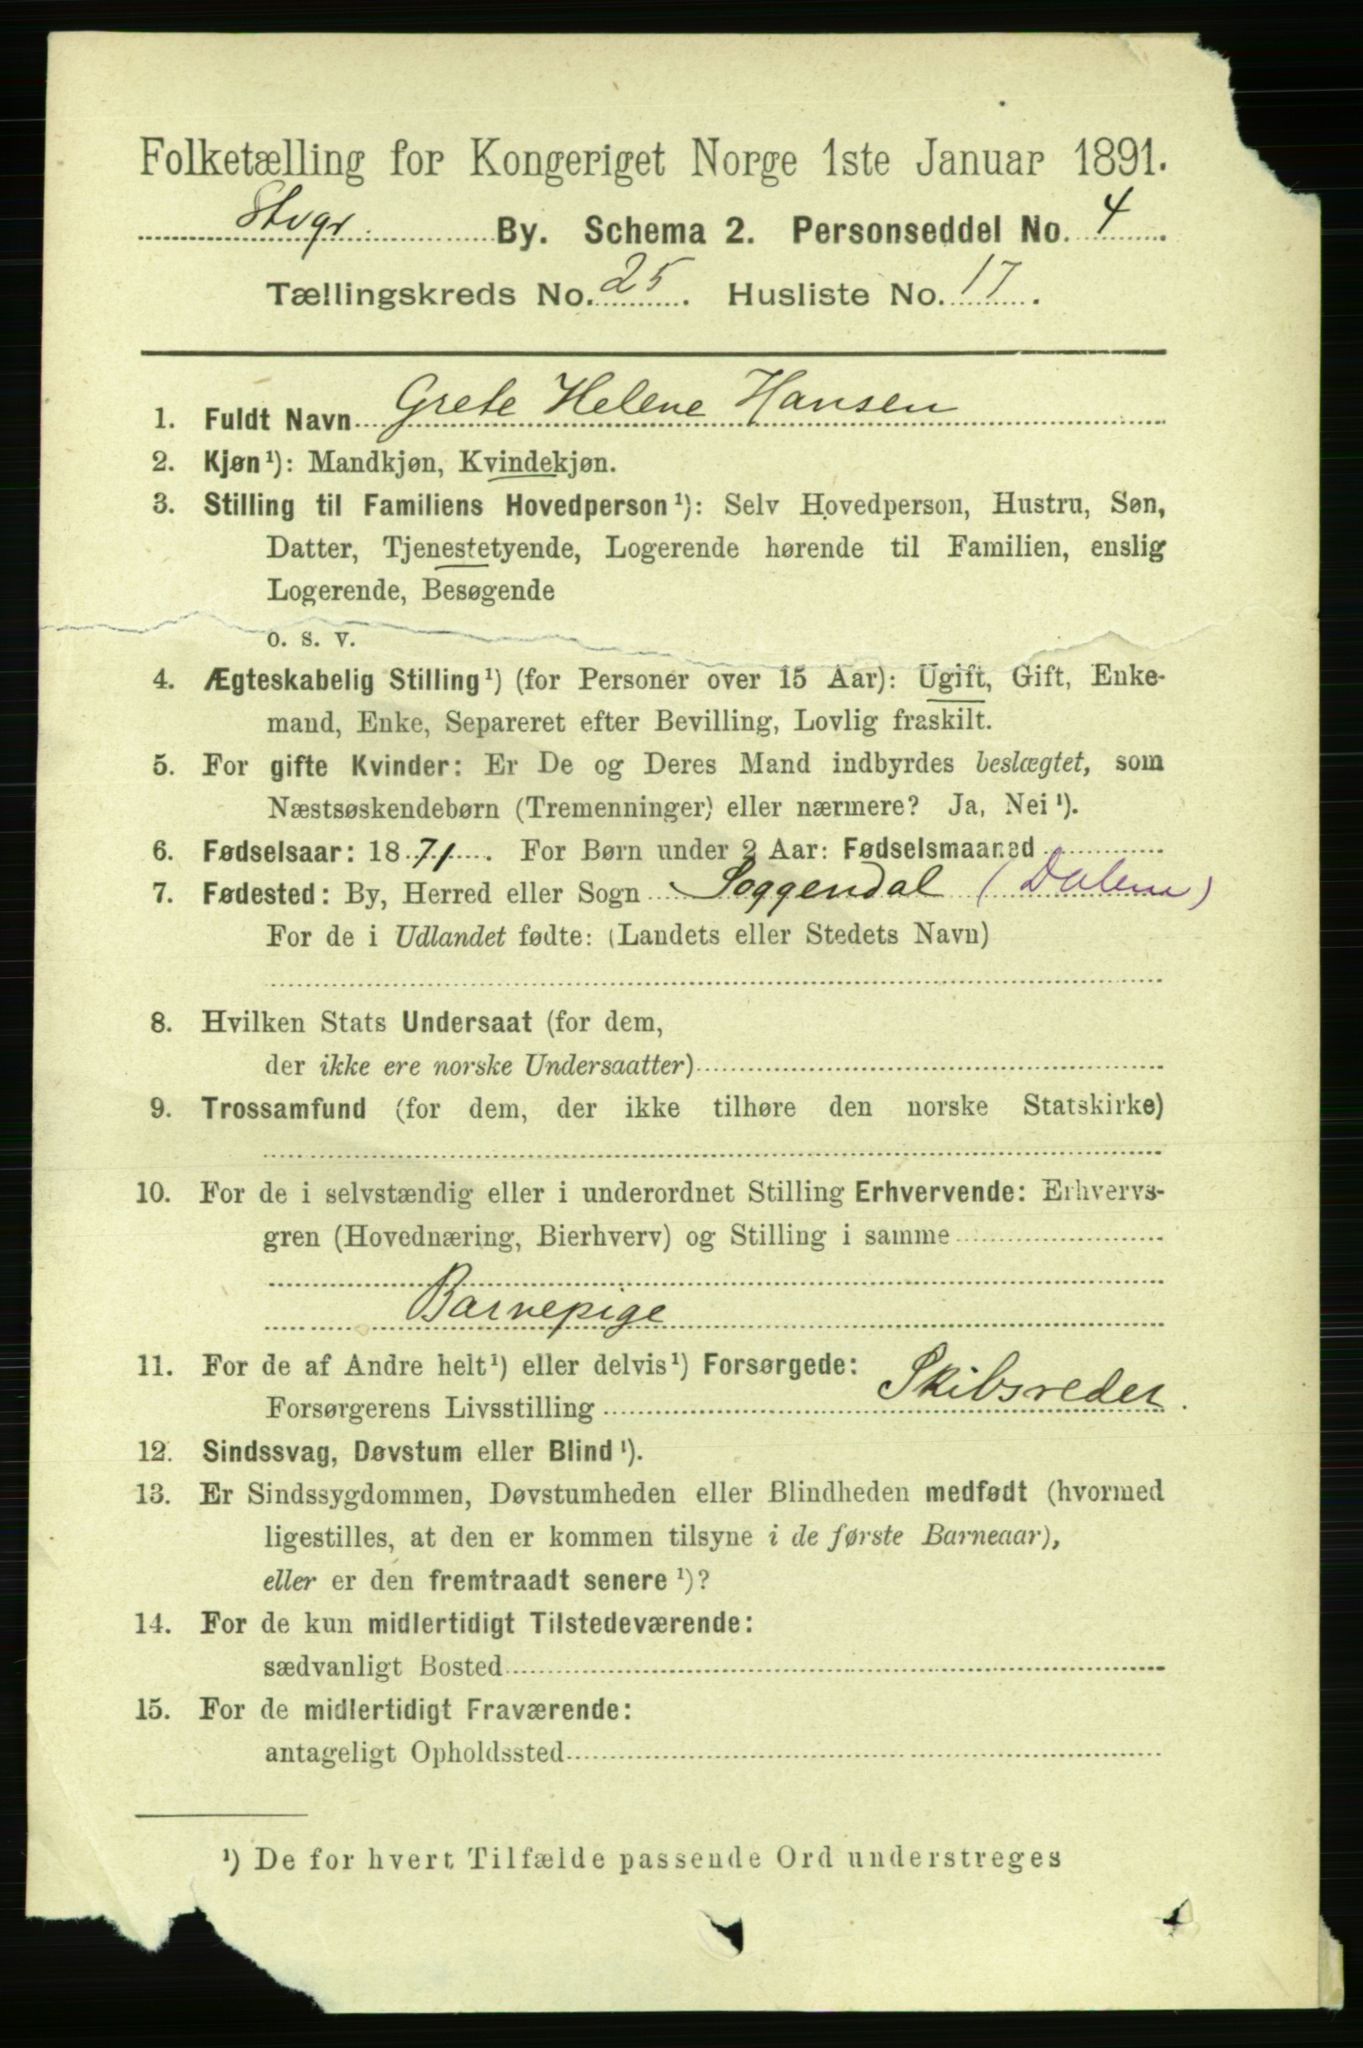 Folketælling for Kongeriget Norge 1ste Januar 1891.
Stvgr. By. Schema 2. Personseddel No. 4.
Tællingskreds No. 25. Husliste No. 17.
1. Fuldt Navn Grete Helene Hansen
2. Kjøn¹): Mandkjøn, Kvindekjøn.
3. Stilling til Familiens Hovedperson¹): Selv Hovedperson, Hustru, Søn,
Datter, Tjenestetyende, Logerende hørende til Familien, enslig
Logerende, Besøgende
o. s. v.
4. Ægteskabelig Stilling¹) (for Personer over 15 Aar): Ugift, Gift, Enke-
mand, Enke, Separeret efter Bevilling, Lovlig fraskilt.
5. For gifte Kvinder: Er De og Deres Mand indbyrdes beslægtet, som
Næstsøskendebørn (Tremenninger) eller nærmere? Ja, Nei¹).
6. Fødselsaar: 1871. For Børn under 2 Aar: Fødselsmaaned
7. Fødested: By, Herred eller Sogn Soggendal (Dalene)
For de i Udlandet fødte: (Landets eller Stedets Navn)
8. Hvilken Stats Undersaat (for dem,
der ikke ere norske Undersaatter)
9. Trossamfund (for dem, der ikke tilhøre den norske Statskirke)
10. For de i selvstændig eller i underordnet Stilling Erhvervende: Erhvervs-
gren (Hovednæring, Bierhverv) og Stilling i samme
Barnepige
11. For de af Andre helt¹) eller delvis¹) Forsørgede:
Forsørgerens Livsstilling Skibsreder.
12. Sindssvag, Døvstum eller Blind¹).
13. Er Sindssygdommen, Døvstumheden eller Blindheden medfødt (hvormed
ligestilles, at den er kommen tilsyne i de første Barneaar),
eller er den fremtraadt senere¹)?
14. For de kun midlertidigt Tilstedeværende:
sædvanligt Bosted
15. For de midlertidigt Fraværende:
antageligt Opholdssted
¹) De for hvert Tilfælde passende Ord understreges